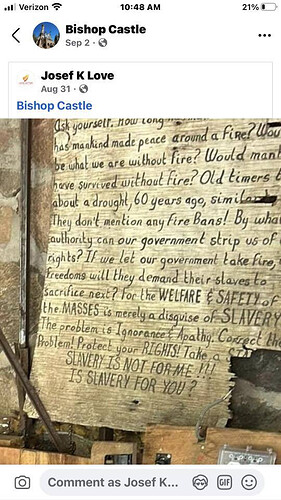 Verizon
10:48 AM
21%
Bishop Castle
Sep 2
Josef K Love
Aug 31
Bishop Castle
Ask yourself. How long
has mankind made peace around a FIRE? Wou
be what we are without fire? Would mank
have survived without fire? Old timers t
about a drought, 60 years ago, simila
They don't mention any Fire Bans! By wha
authority can our government strip us of
rights? If we let our government take fire,
freedoms will they demand their slaves to
sacrifice next? For the WELFARE & SAFETY of
the MASSES is merely a disguise of SLAVERY
The problem is Ignorance & Apathy. Correct the
Problem! Protect your RIGHTS! Take a
SLAVERY IS NOT FOR ME !!!
IS SLAVERY FOR YOU ?
Comment as Josef K...
GIF